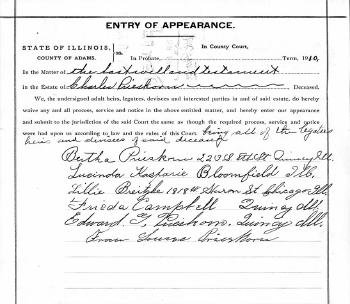 ENTRY OF APPEARANCE.
STATE OF ILLINOIS, } ss. In County Court,
COUNTY OF ADAMS. In Probate, Term, 1910,
In the Matter of the last will and testament
in the Estate of Charles Prieshorn Deceased.
We, the undersigned adult heirs, legatees, devisees and interested parties in and of said estate, do hereby
waive any and all process, service and notice in the above entitled matter, and hereby enter our appearance
and submit to the jurisdiction of the said Court the same as though the required process, service and notice
were had upon us according to law and the rules of this Court. being all of the legatees
heirs and devisees of said deceased
Bertha Prieshorn St Quincy Ill.
Lucinda Bloomfield Ill.
Lillie St Chicago Ill.
Frieda Campbell Quincy Ill.
Edward Prieshorn. Quincy Ill.
Louise Prieshorn